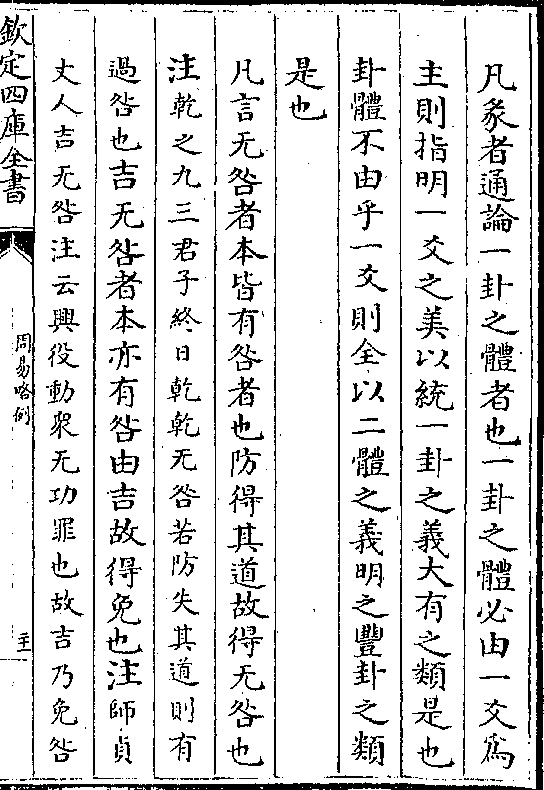 凡彖者通論一卦之體者也一卦之體必由一爻為
主則指明一爻之美以統一卦之義大有之類是也
卦體不由乎一爻則全以二體之義明之豐卦之類
是也
凡言无咎者本皆有咎者也防得其道故得无咎也
注乾之九三君子終日乾乾无咎若防失其道則有
過咎也吉无咎者本亦有咎由吉故得免也注師貞
丈人吉无咎注云興役動衆无功罪也故吉乃免咎
欽定四庫全書
周易略例